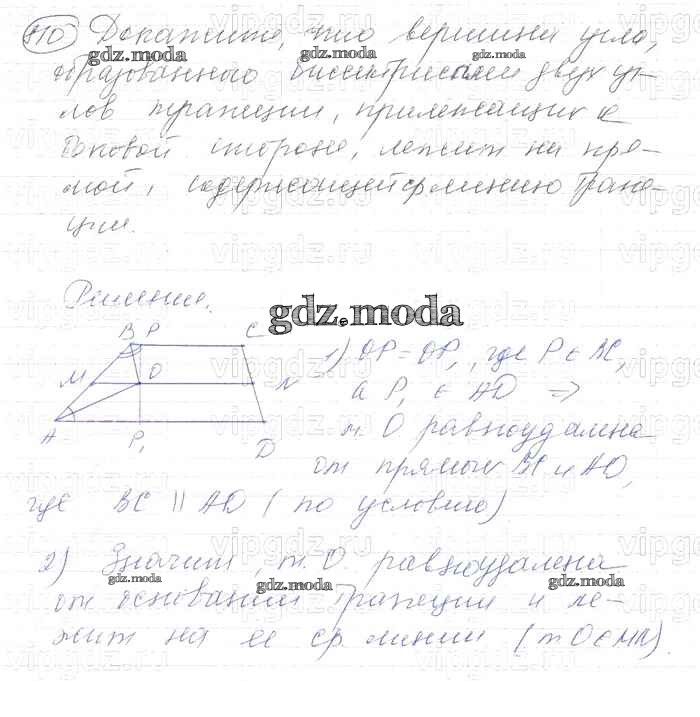 810 Докажите, что вершина угла,
образованного биссектрисами двух уг-
лов трапеции, прилежащих к
боковой стороне, лежит на пря-
мой, содержащей ср. линию трапе-
ции.
Решение.
gdz.moda
B P C
M O N
A P₁ D
1) OP = OP₁, где P ∈ BC,
а P₁ ∈ AD ⇒
т. O равноудалена
от прямых BC и AD,
где BC || AD (по условию)
2) Значит, т. O равноудалена
от оснований трапеции и ле-
жит на ее ср. линии (т. O ∈ MN).